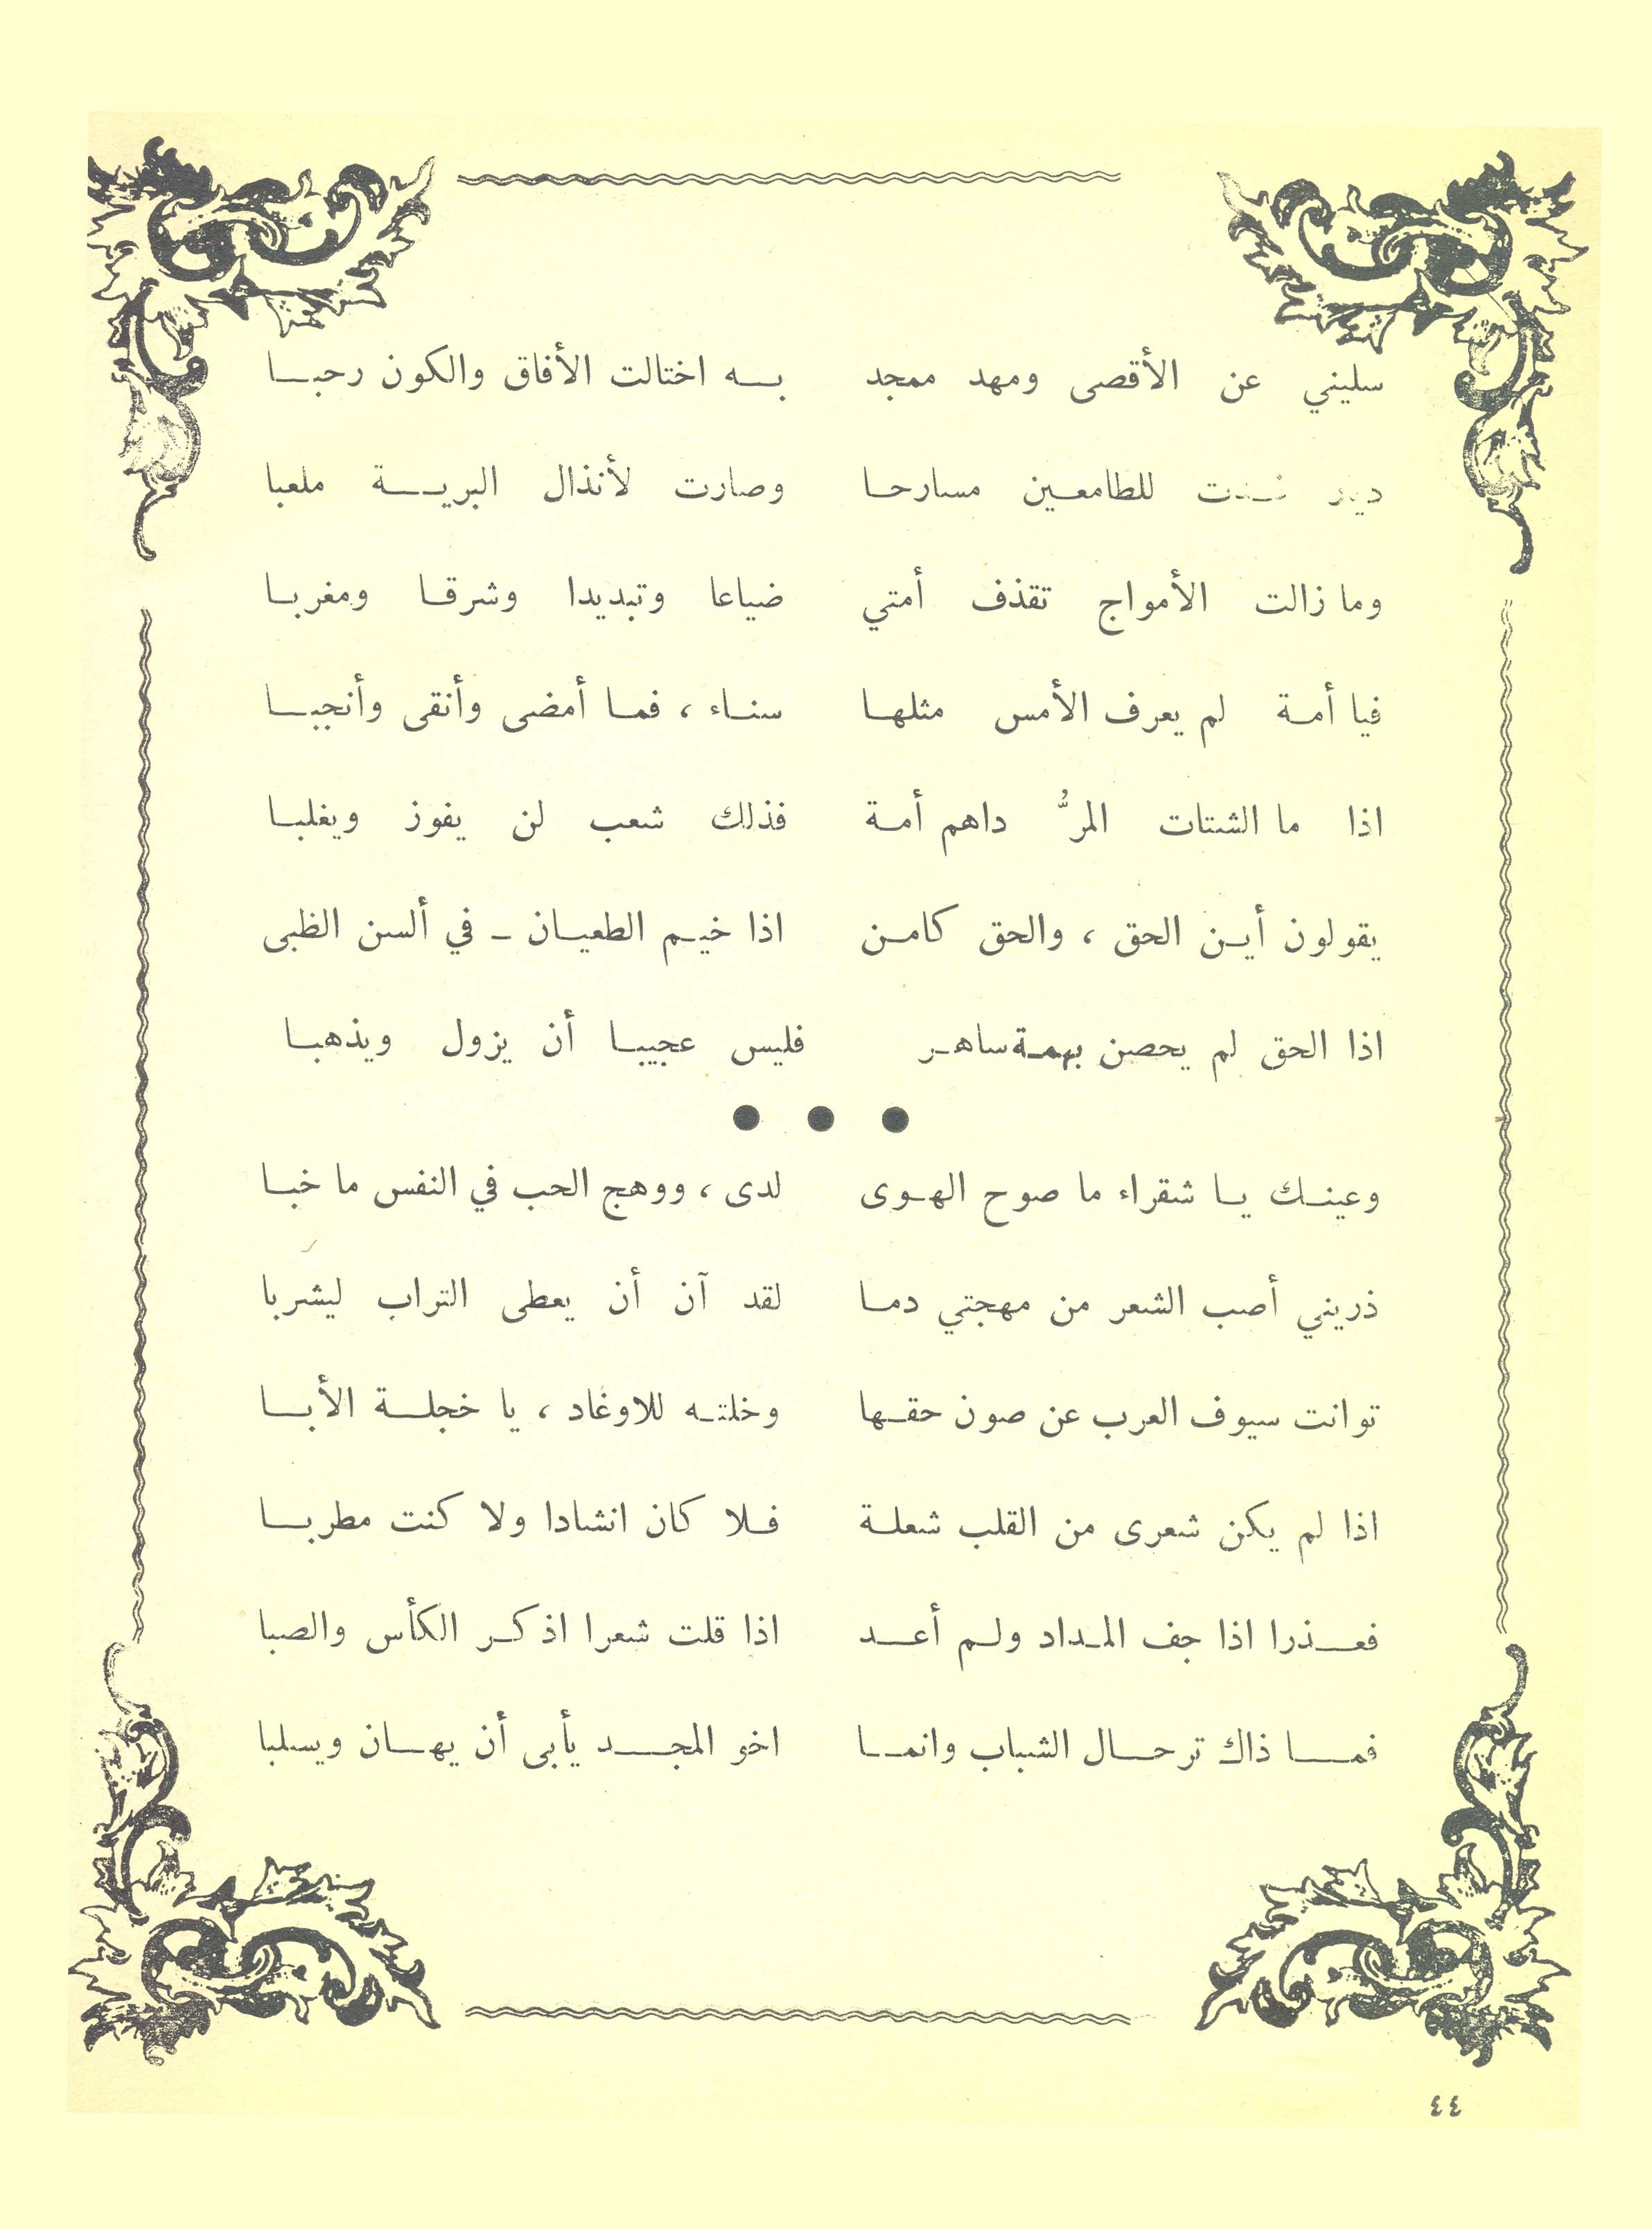 سليني عن الأقصى ومهد ممجد به اختالت الأفاق والكون رحبا
للطامعين مسارحا وصارت لأنذال البرية ملعبا
وما زالت الأمواج تقذف أمتي ضياعا وتبديدا وشرقا ومغربا
فيا أمة لم يعرف الأمس مثلها سناء ، فما أمضى وأنقى وأنجبا
اذا ما الشتات المرُّ داهم أمة فذلك شعب لن يفوز ويغلبا
يقولون أين الحق ، والحق كامن اذا خيم الطعيان ـ في ألسن الظبى
اذا الحق لم يحصن بهمة ساهر فليس عجيبا أن يزول ويذهبا
● ● ●
وعينك يا شقراء ما صوح الهوى لدى ، ووهج الحب في النفس ما خبا
ذريني أصب الشعر من مهجتي دما لقد آن أن يعطى التراب ليشربا
توانت سيوف العرب عن صون حقها وخلته للاوغاد ، يا خجلة الأبا
اذا لم يكن شعرى من القلب شعلة فلا كان انشادا ولا كنت مطربا
فعذرا اذا جف المداد ولم أعد اذا قلت شعرا اذكر الكأس والصبا
فما ذاك ترحال الشباب وانما اخو المجد يأبى أن يهان ويسلبا
٤٤